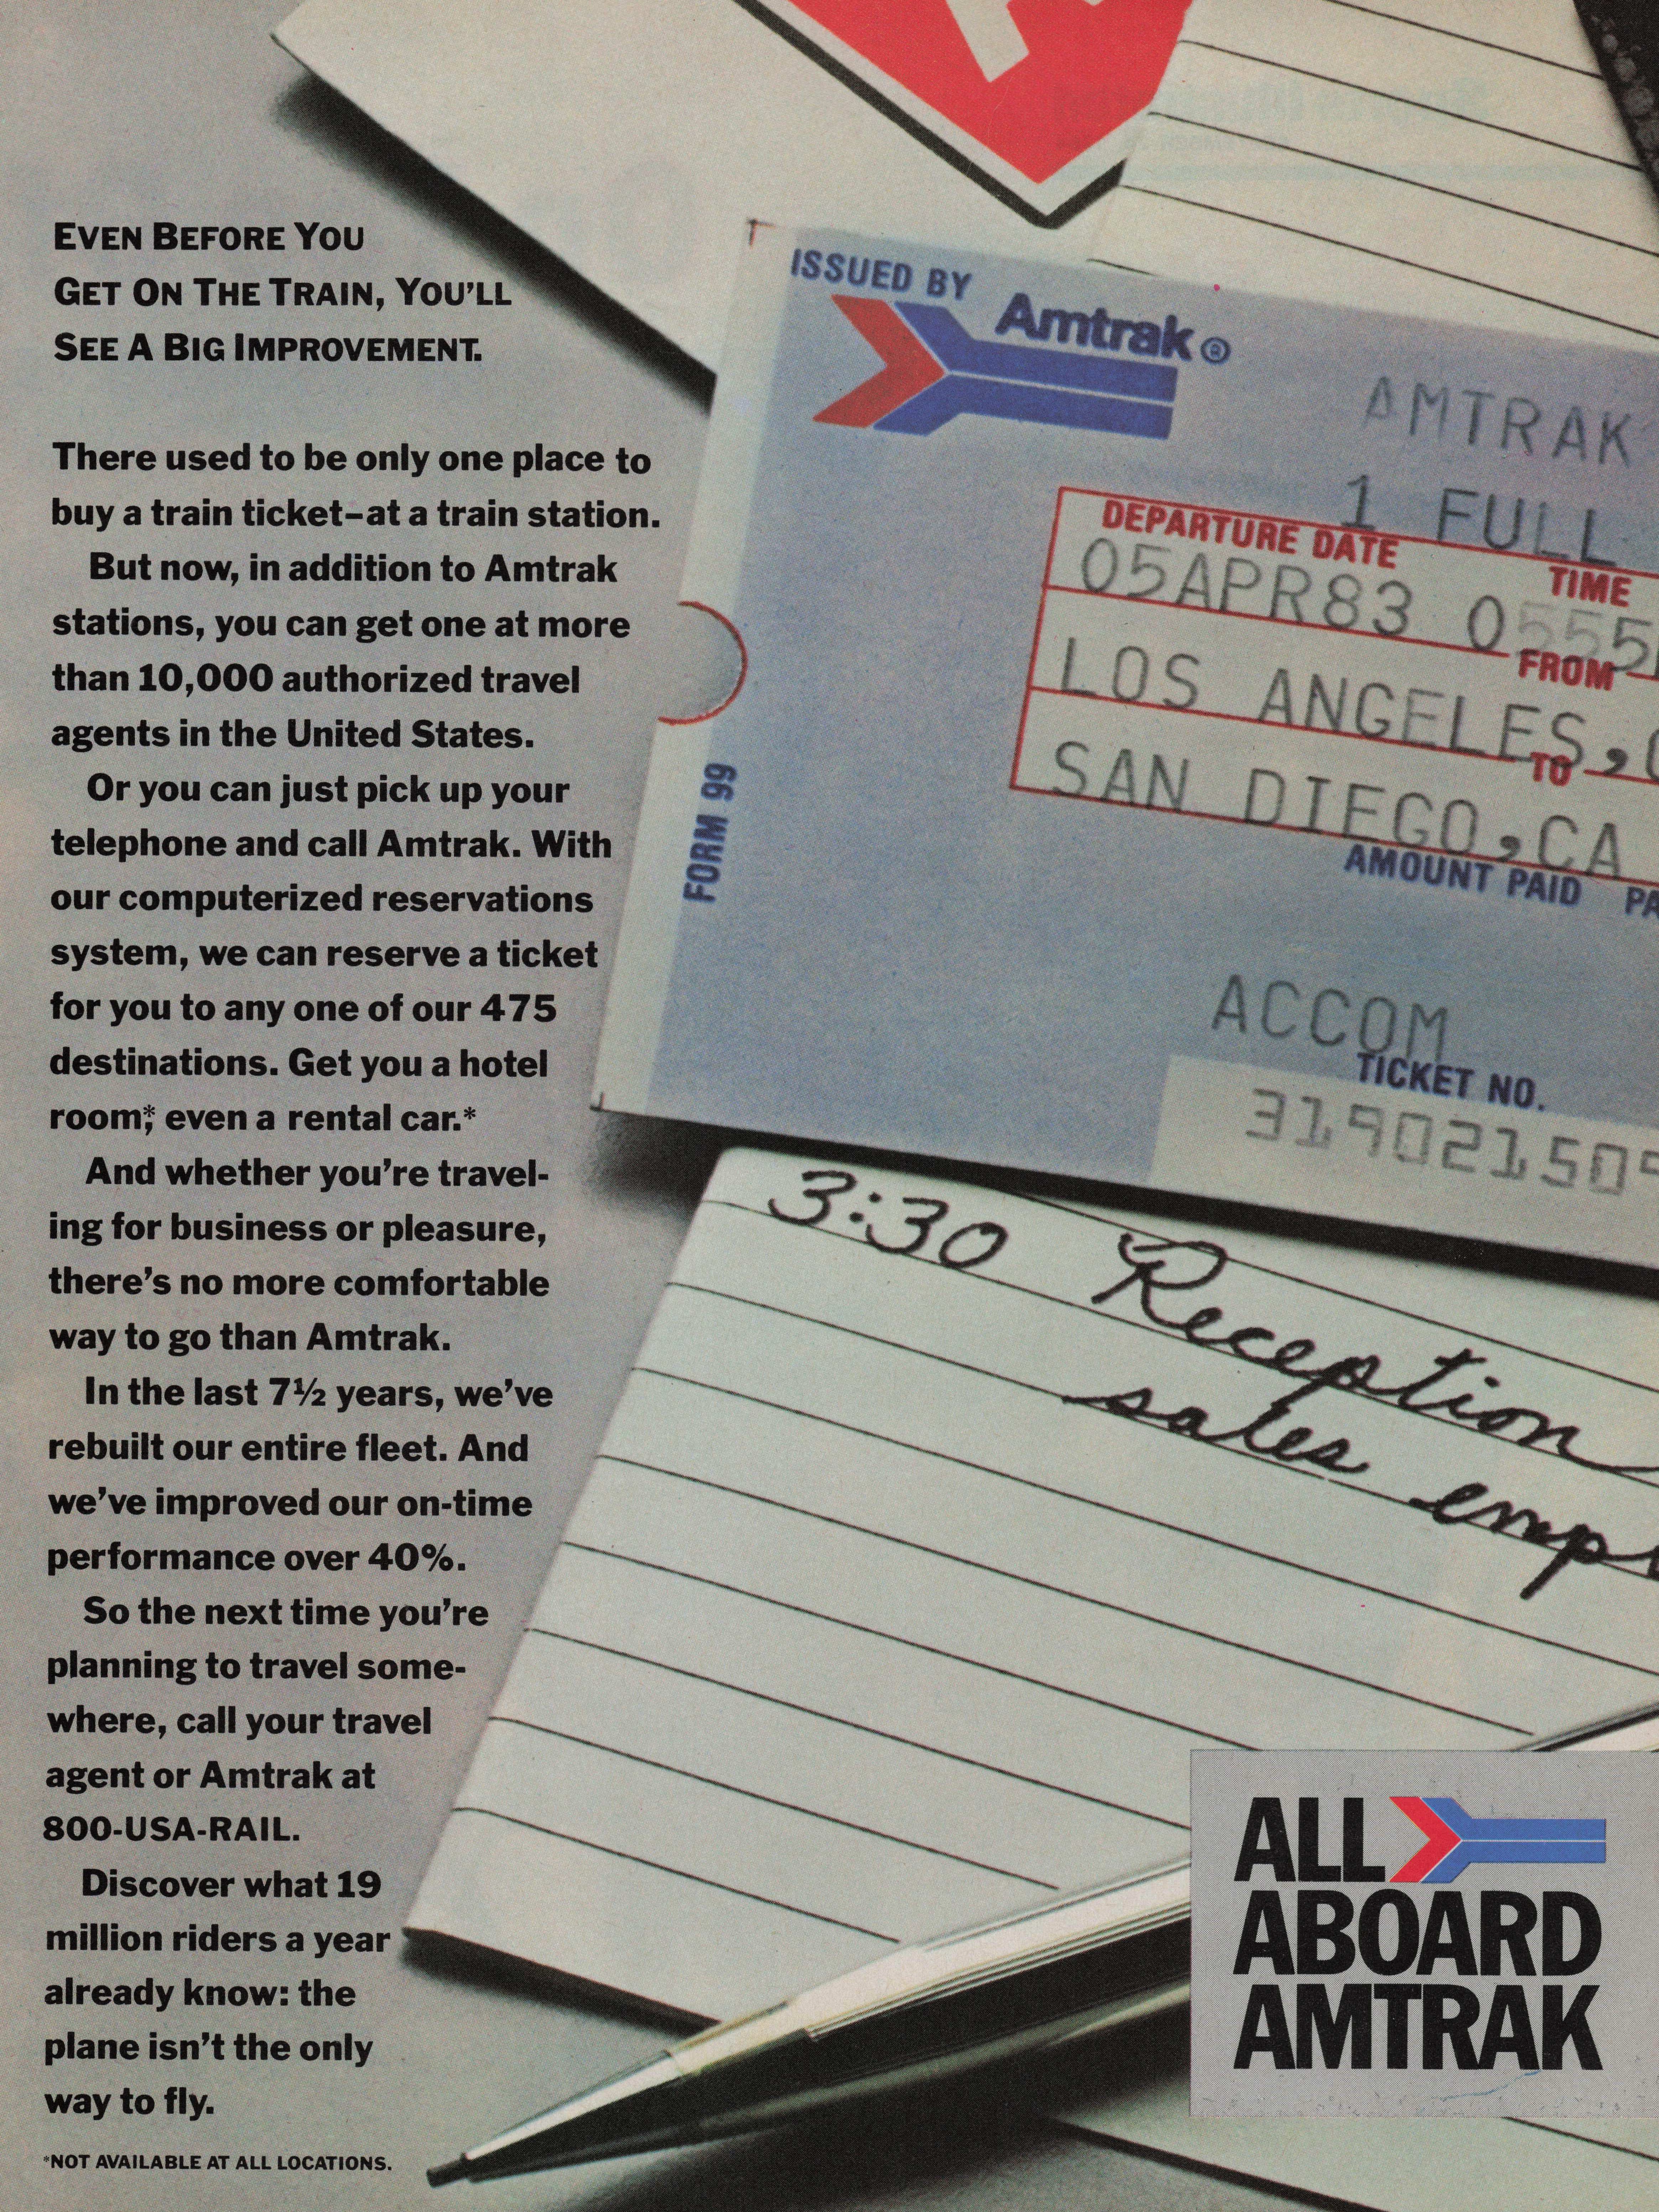 EVEN BEFORE YOU
GET ON THE TRAIN, YOU'LL
SEE A BIG IMPROVEMENT.
There used to be only one place to
buy a train ticket–at a train station.
But now, in addition to Amtrak
stations, you can get one at more
than 10,000 authorized travel
agents in the United States.
Or you can just pick up your
telephone and call Amtrak. With
our computerized reservations
system, we can reserve a ticket
for you to any one of our 475
destinations. Get you a hotel
room,* even a rental car.*
And whether you're travel-
ing for business or pleasure,
there's no more comfortable
way to go than Amtrak.
In the last 7½ years, we've
rebuilt our entire fleet. And
we've improved our on-time
performance over 40%.
So the next time you're
planning to travel some-
where, call your travel
agent or Amtrak at
800-USA-RAIL.
Discover what 19
million riders a year
already know: the
plane isn't the only
way to fly.
*NOT AVAILABLE AT ALL LOCATIONS.
ISSUED BY
Amtrak®
AMTRAK
1 FULL
DEPARTURE DATE TIME
05APR83 0555
FROM
LOS ANGELES,
TO
SAN DIEGO,CA
AMOUNT PAID
FORM 99
ACCOM
TICKET NO.
319021509
3:30 Reception
sales
ALL
ABOARD
AMTRAK